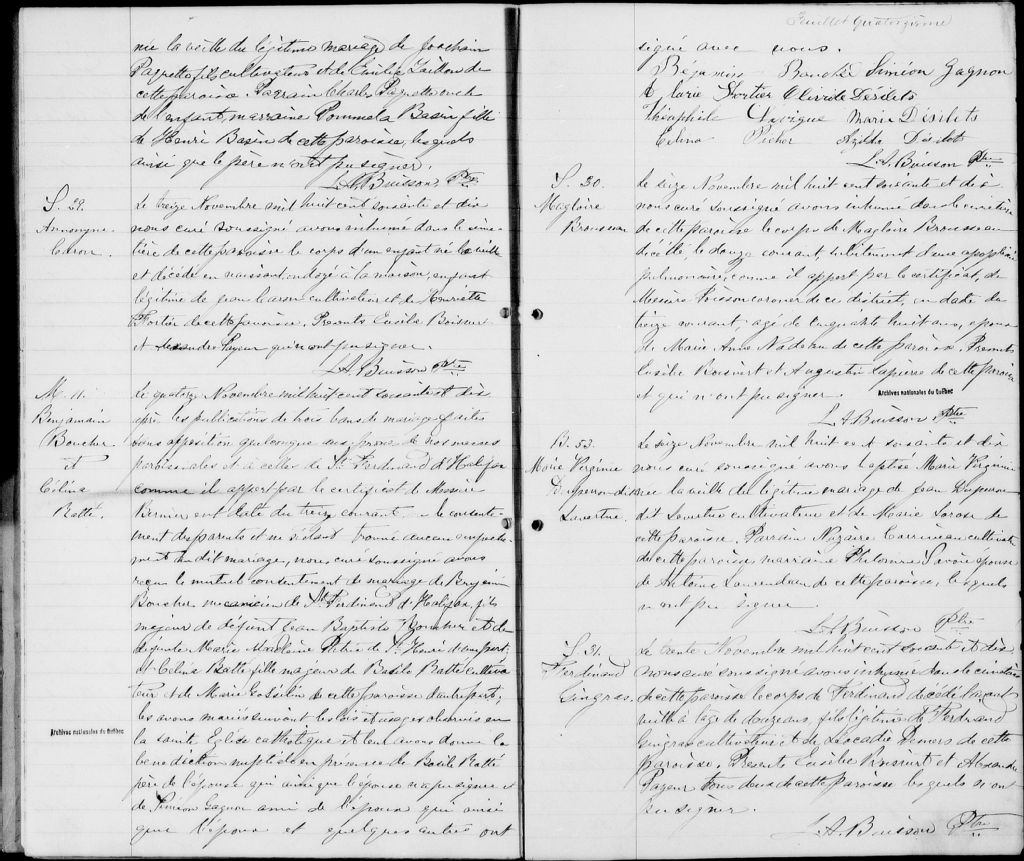 née la veille du légitime mariage de Joachim
Paquette fils cultivateur et de Emilie de
cette paroisse. Parrain Charles Paquette oncle
de l'enfant, marraine Pommela Bazin fille
de Henri Bazin de cette paroisse, lesquels
ainsi que le père n'ont pu signer.
L.A. Buisson, Ptre
S. 29.
Annonyme
Caron.
Le treize Novembre mil huit cent soixante et dix
nous curé soussigné avons inhumé dans le cime-
tière de cette paroisse le corps d'un enfant né la veille
et décédé en naissant, ondoyé à la maison, enfant
légitime de Jean Caron cultivateur et de Henriette
Fortier de cette paroisse. Présents Exsile Boisvert
et Alexandre Payeur qui n'ont pu signer.
L.A. Buisson Ptre
M. 11.
Benjamin
Boucher
et
Célina
Batté.
Le quatorze Novembre mil huit cent soixante et dix
après les publications de trois bans de mariage faites
sans opposition quelconque aux prones de nos messes
paroissiales et à celles de St Ferdinand d'Halifax
comme il appert par le certificat de Messire
Bernier en date du treize courant. le consente-
ment des parents et ne s'étant trouvé aucun empêche-
ment au dit mariage, nous curé soussigné avons
reçu le mutuel consentement de mariage de Benjamin
Boucher mecanicien de St Ferdinand d'Halifax, fils
majeur de défunt Jean Baptiste Boucher et de
défunte Marie Madelaine de St Henri d'une part;
et Célina Batté fille majeure de Basile Batté cultiva
teur et de Marie Josselin de cette paroisse d'autre part;
les avons mariés suivant les lois et usages observés en
la sainte Eglise catholique et leur avons donné la
benediction nuptiale en présence de Basile Batté
père de l'épouse qui ainsi que l'épouse n'a pu signer et
de Siméon Gagnon ami de l'époux qui ainsi
que l'époux et quelques autres ont
Archives nationales du Québec
Feuillet Quatorzième
signé avec nous.
Benjamin Boucher Siméon Gagnon
Marie Fortier Elivide Désilets
Théophile Marie Désilets
Célina Picher Azilda Désilets
L.A. Buisson Ptre
S. 30.
Magloire
Brousseau
Le seize Novembre mil huit cent soixante et dix
nous curé soussigné avons inhumé dans le cimetière
de cette paroisse le corps de Magloire Brousseau
décédé le douze courant, subitement d'une apoplexie
pulmonaire, comme il appert par le certificat, de
Messire Poisson coroner de ce district, en date du
treize courant, agé de cinquante huit ans, epoux
de Marie Anne Nadeau de cette paroisse. Présents
Exsile Boisvert et Augustin Lapierre de cette paroisse
et qui n'ont pu signer.
Archives nationales du Québec
L.A. Buisson, Ptre
B. 53.
Marie Virginie
Duperron dit
Lavertue.
Le seize Novembre mil huit cent soixante et dix
nous curé soussigné avons baptisé Marie Virginie
née la veille du légitime mariage de Jean Duperron
dit Lavertue cultivateur et de Marie Larose de
cette paroisse. Parrain Nazaire Corriveau cultivateur
de cette paroisse, marraine Philomène Savoie épouse
de Antoine Laurendeau de cette paroisse, lesquels
n'ont pu signer
L.A. Buisson Ptre
S. 31.
Ferdinand
Gingras.
Le trente Novembre mil huit cent soixante et dix
nous curé soussigné avons inhumé dans le cimetière
de cette paroisse le corps de Ferdinand décédé l'avant
veille à l'âge de onze ans, fils légitime de Ferdinand
Gingras cultivateur et de Léocadie Demers de cette
paroisse. Présents Exsile Boisvert et Alexandre
Payeur tous deux de cette paroisse lesquels n'ont
pu signer.
L.A. Buisson Ptre